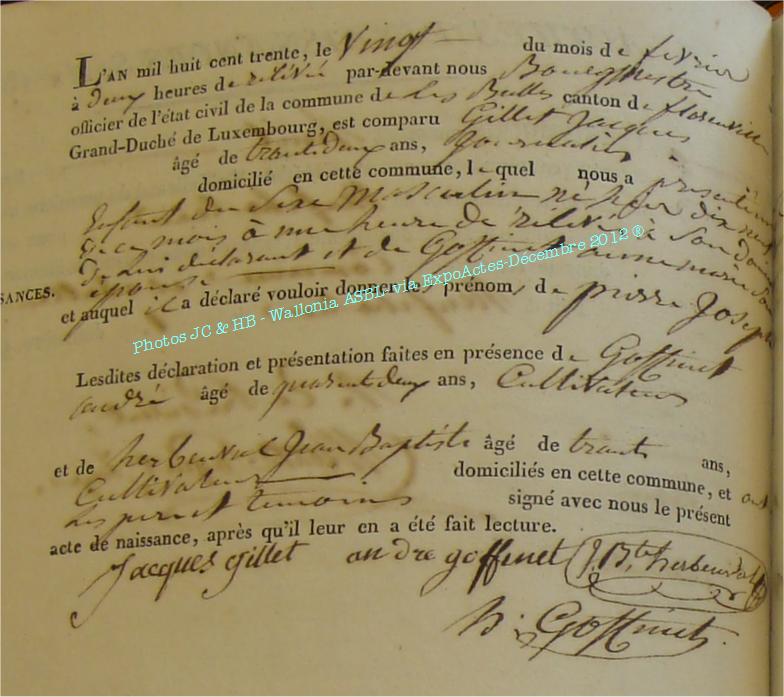 L'AN mil huit cent trente, le vingt du mois de fevrier
à deux heures de relevée par-devant nous Bourgmestre
officier de l'état civil de la commune de Les Bulles canton de florenville
Grand-Duché de Luxembourg, est comparu Gillet Jacques
âgé de trantedeux ans, Journalier
domicilié en cette commune, lequel nous a présenté un
Enfant du Sexe Masculin né hier dix neuf
de ce mois à une heure de relevée à son domicile
de lui déclarant et de Goffinet anne marie son
épouse
SANCES.
et auquel il a déclaré vouloir donner les prénoms de pierre Joseph
Photos JC & HB - Wallonia ASBL-via ExpoActes-Décembre 2012 ®
Lesdites déclaration et présentation faites en présence de Goffinet
andré âgé de quarantedeux ans, Cultivateur
et de herbeuval Jean Baptiste âgé de trante ans,
Cultivateur domiciliés en cette commune, et ont
Les pere et temoins signé avec nous le présent
acte de naissance, après qu'il leur en a été fait lecture.
Jacques Gillet andre goffinet J. Bte herbeuval
h. Goffinet